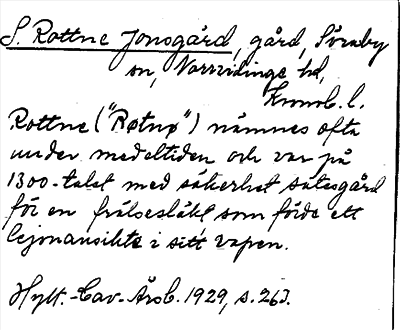 S. Rottne Jonsgård, gård, Söraby
sn, Norrvidinge hd,
Kronob. l.
Rottne ("Røtnø") nämnes ofta
under medeltiden och var på
1300-talet med säkerhet sätesgård
för en frälsesläkt, som förde ett
lejonansikte i sitt vapen.
Hylt.-Cav.-Årsb. 1929, s. 263.